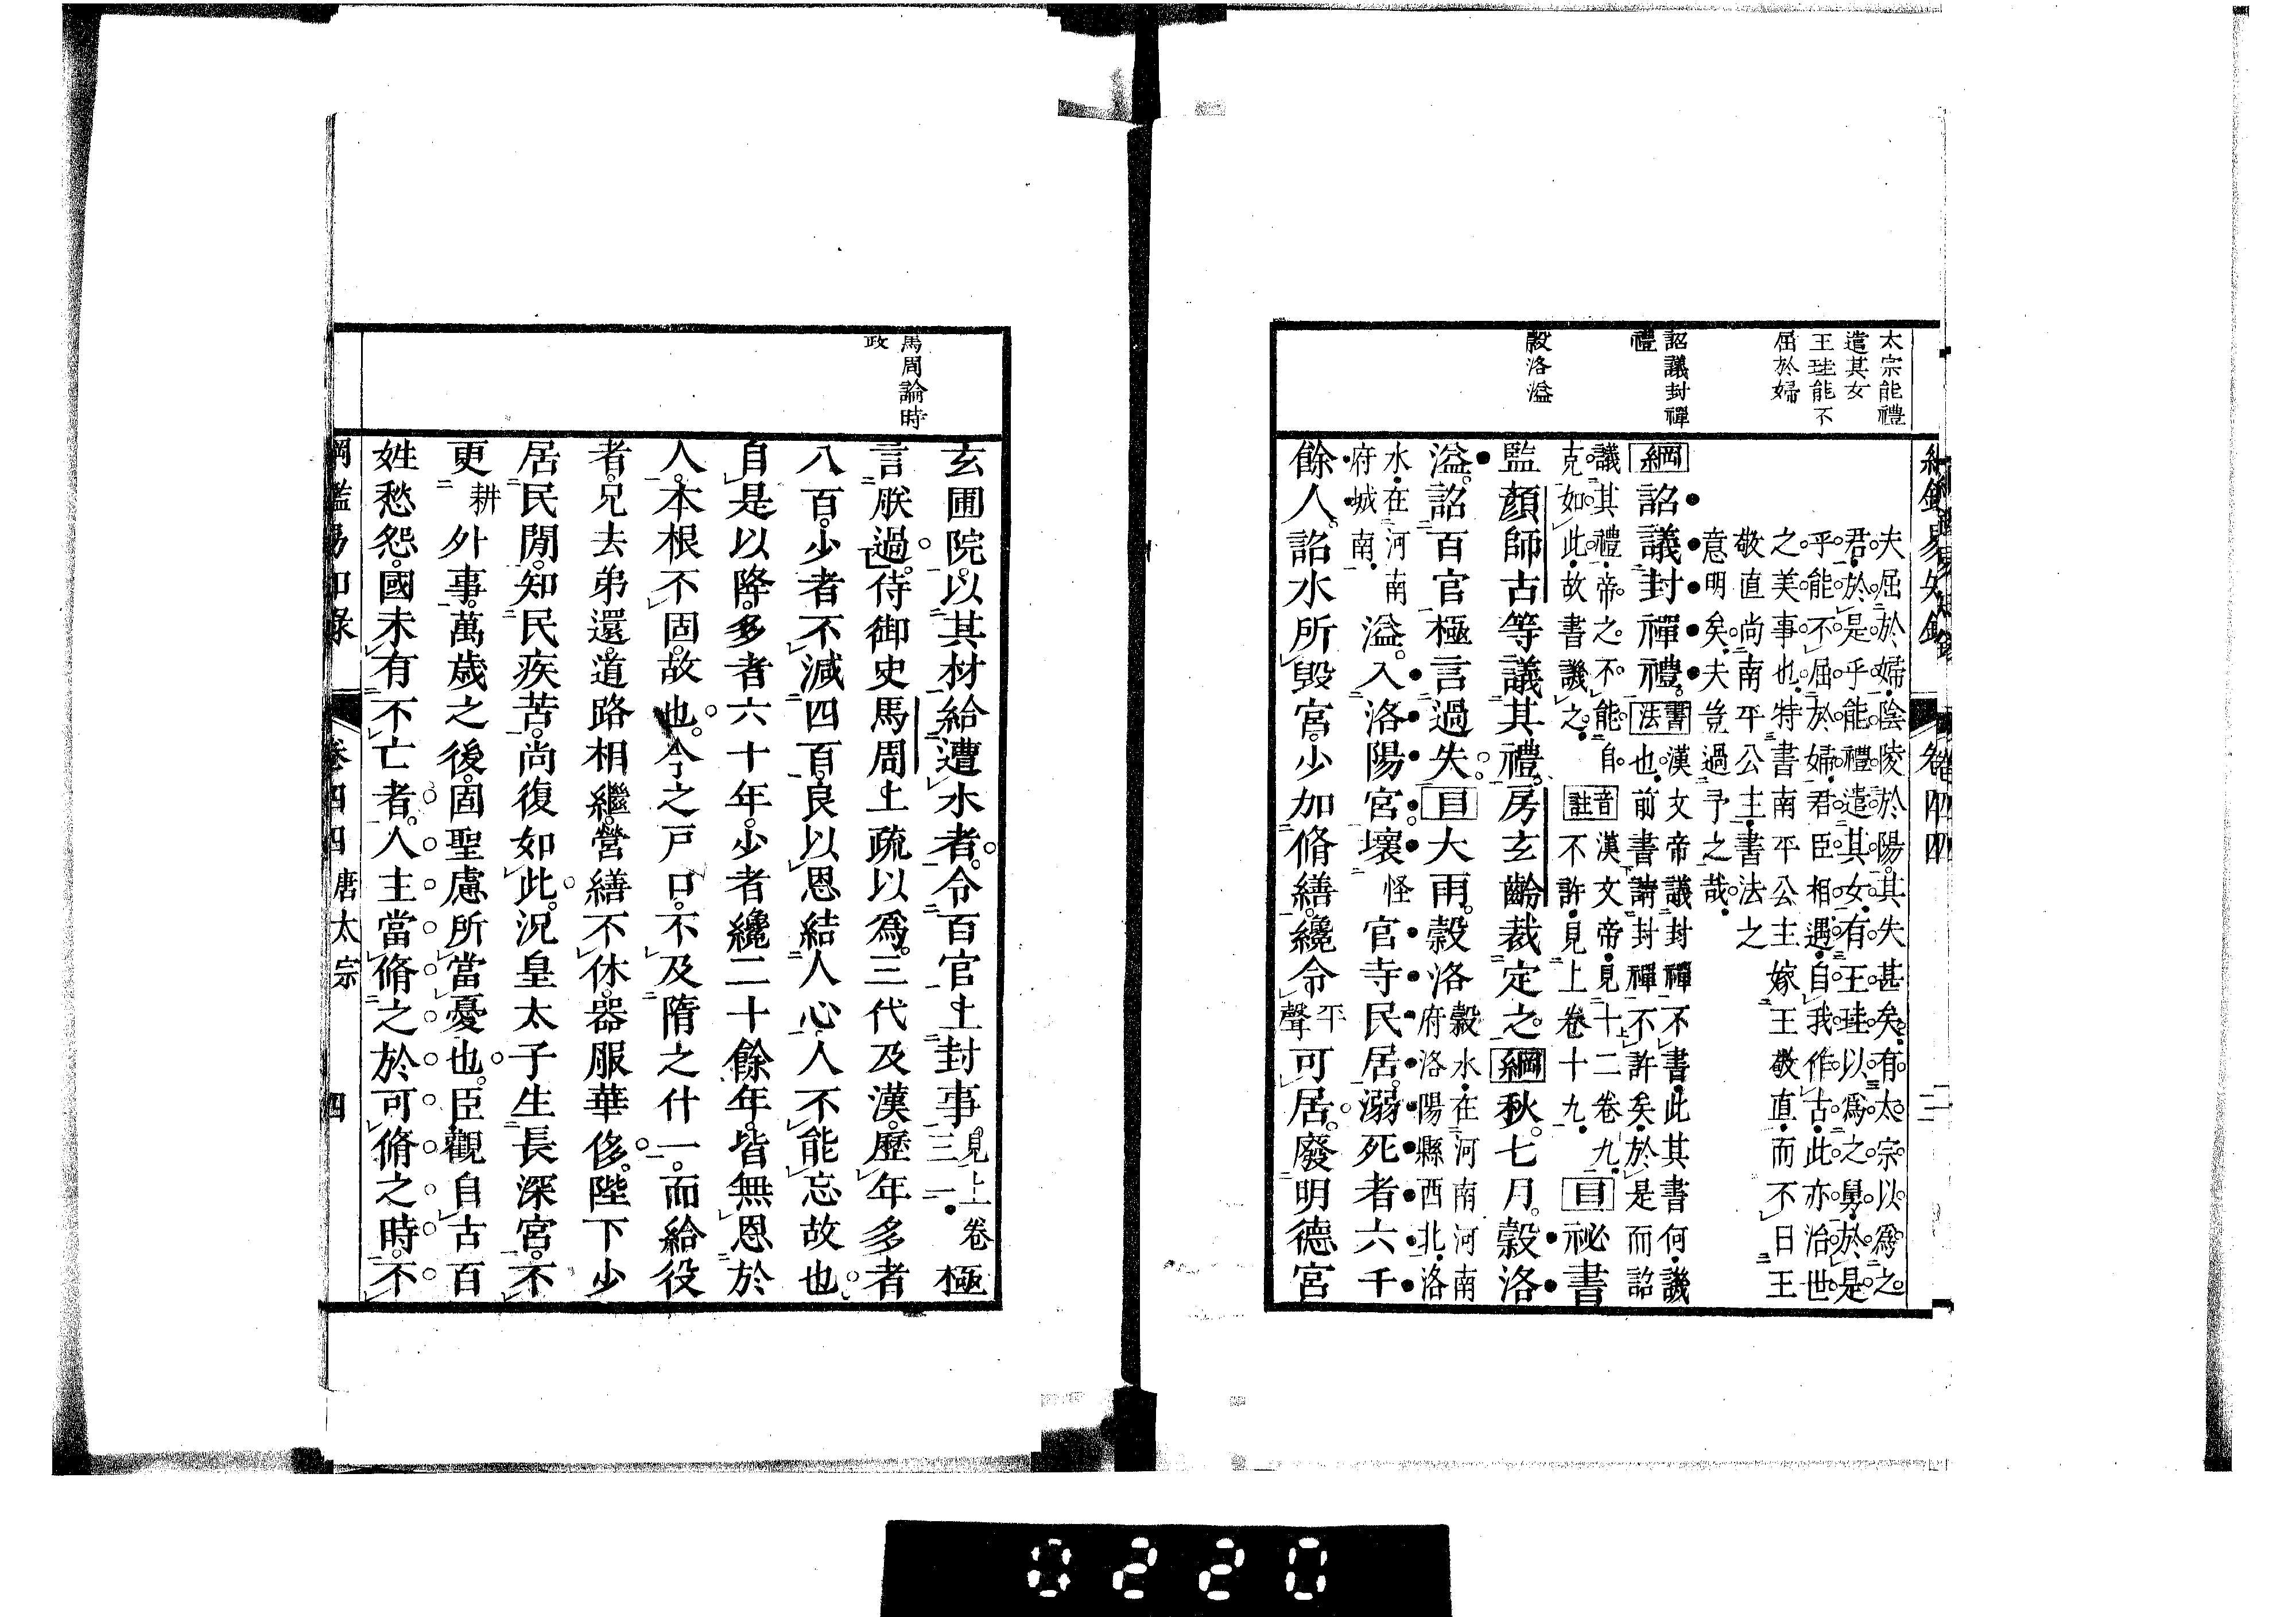 太宗能禮
遣其女
王珪能不
屈於婦
詔議封禪
禮
穀洛溢
夫屈於婦陰陵於陽其失甚矣有太宗以爲之
君於是乎能禮遣其女有王珪以爲之舅於是
乎能不屈於婦君臣相遇自我作古此亦治世
之美事也特書南平公主嫁王敬直而不曰王
敬直尚南平公主書法之
意明矣夫豈過予之哉
綱詔議封禪禮書法漢文帝議封禪不書此其書何譏
也前書請封禪不許矣於是而詔
議其禮帝之不能自
克如此故書譏之音註漢文帝見十二卷九
不許見上卷十九目祕書
監顏師古等議其禮房玄齡裁定之綱秋七月穀洛
溢詔百官極言過失目大雨穀洛穀水在河南河南
府洛陽縣西北洛
水在河南
府城南溢入洛陽宮壞怪官寺民居溺死者六千
餘人詔水所毀宮少加脩繕纔令平聲可居廢明德宮
卷四四
馬周論時
政
玄圃院以其材給遭水者令百官上封事見上卷
三一極
言朕過侍御史馬周上疏以爲三代及漢歷年多者
八百少者不減四百良以恩結人心人不能忘故也
自是以降多者六十年少者纔二十餘年皆無恩於
人本根不固故也今之戸口不及隋之什一而給役
者兄去弟還道路相繼營繕不休器服華侈陛下少
居民閒知民疾苦尚復如此況皇太子生長深宮不
更耕外事萬歲之後固聖慮所當憂也臣觀自古百
姓愁怨國未有不亡者人主當脩之於可脩之時不
綱鑑易知錄 卷四四 唐太宗 四
0220